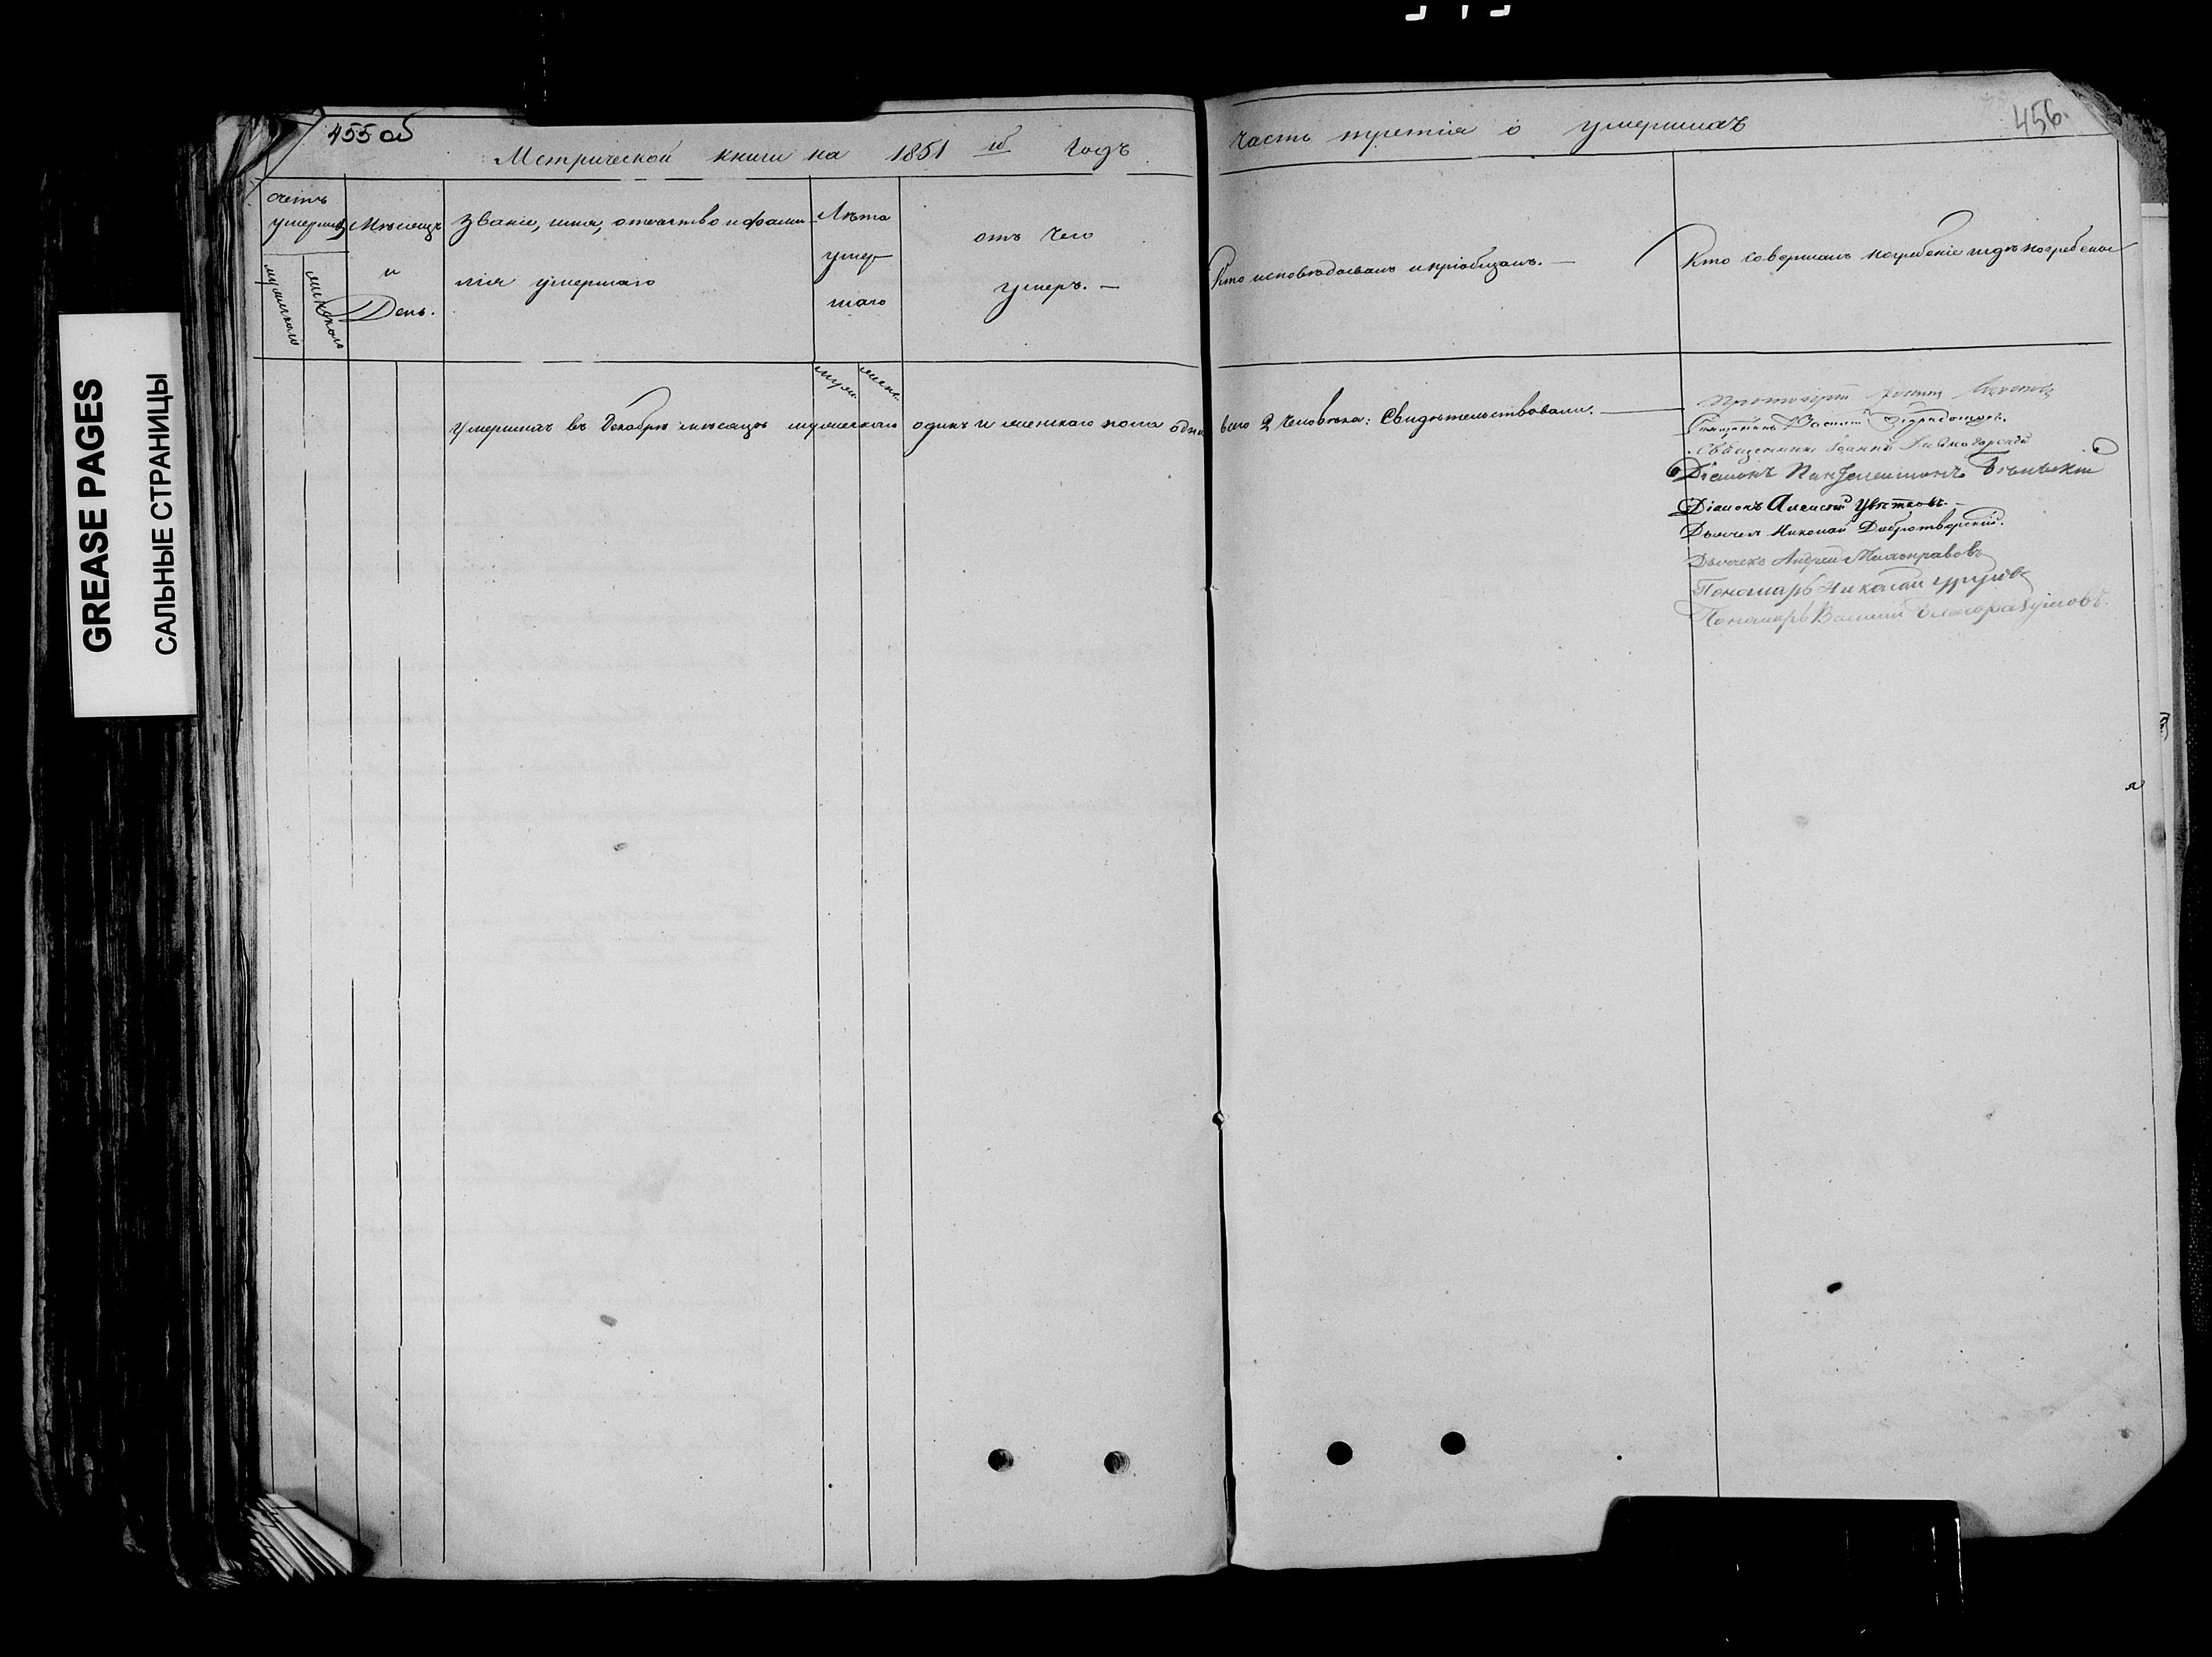 GREASE PAGES
САЛЬНЫЕ СТРАНИЦЫ
455 об
Метрической книги на 1851 й Годъ
счетъ умершихъ
мужескаго
женскаго
Мѣсяцъ
и
День.
Званіе, имя, отечество и фами-
лія умершаго
Лѣта
умер-
шаго
муж.
женс.
отъ чего
умеръ. —
Умершихъ въ Декабрѣ мѣсяцѣ мужескаго одинъ и женскаго пола одна
456.
Часть третія о умершихъ
Кто исповѣдовалъ и пріобщалъ. —
Кто совершалъ погребеніе и гдѣ погребены
всего 2 человѣка: Свидѣтельствовали. —
Протоіерей
Священникъ Василій
Священникъ Іоаннъ
Діаконъ Пантелеимонъ
Діаконъ Алексій Цвѣтковъ. —
Дьячекъ Николай Добротворскій.
Дьячекъ Андрей Миловравовъ
Пономарь Николай
Пономарь Василій Благоразумовъ.